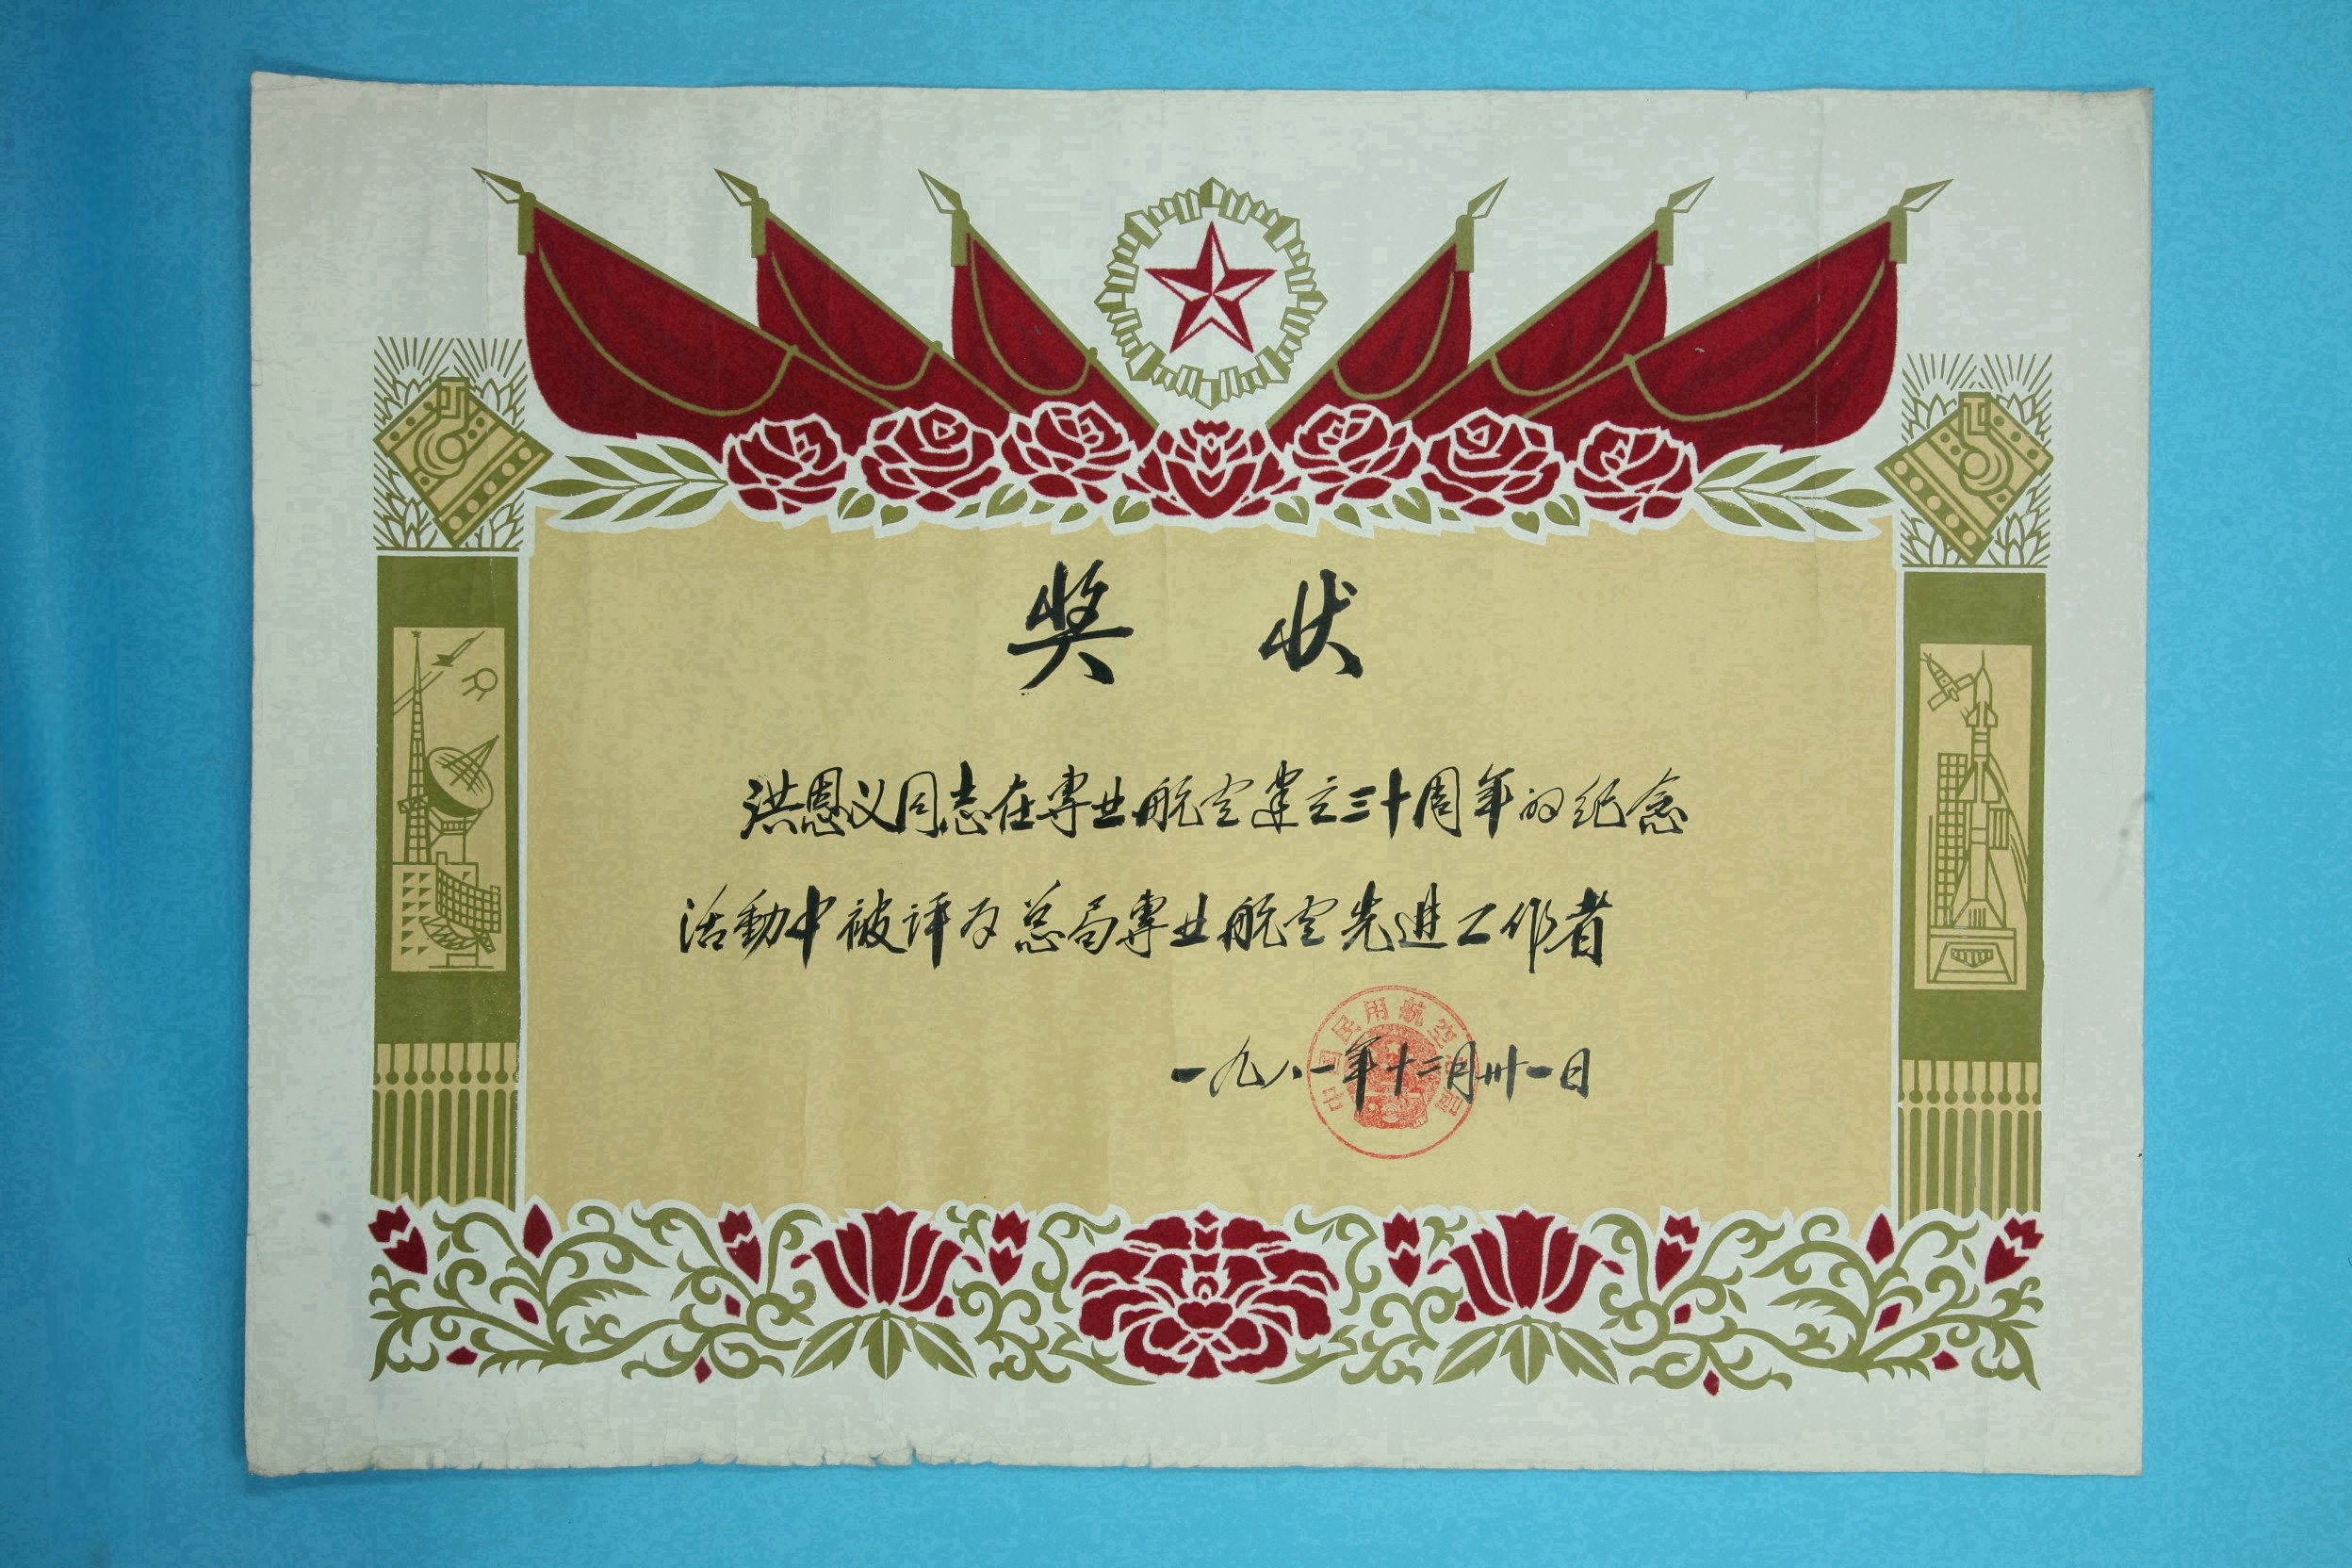 奖 状
洪恩义同志在專业航空建立三十周年的纪念
活動中被评为总局專业航空先进工作者
中国民用航空总局
一九八一年十二月卅一日